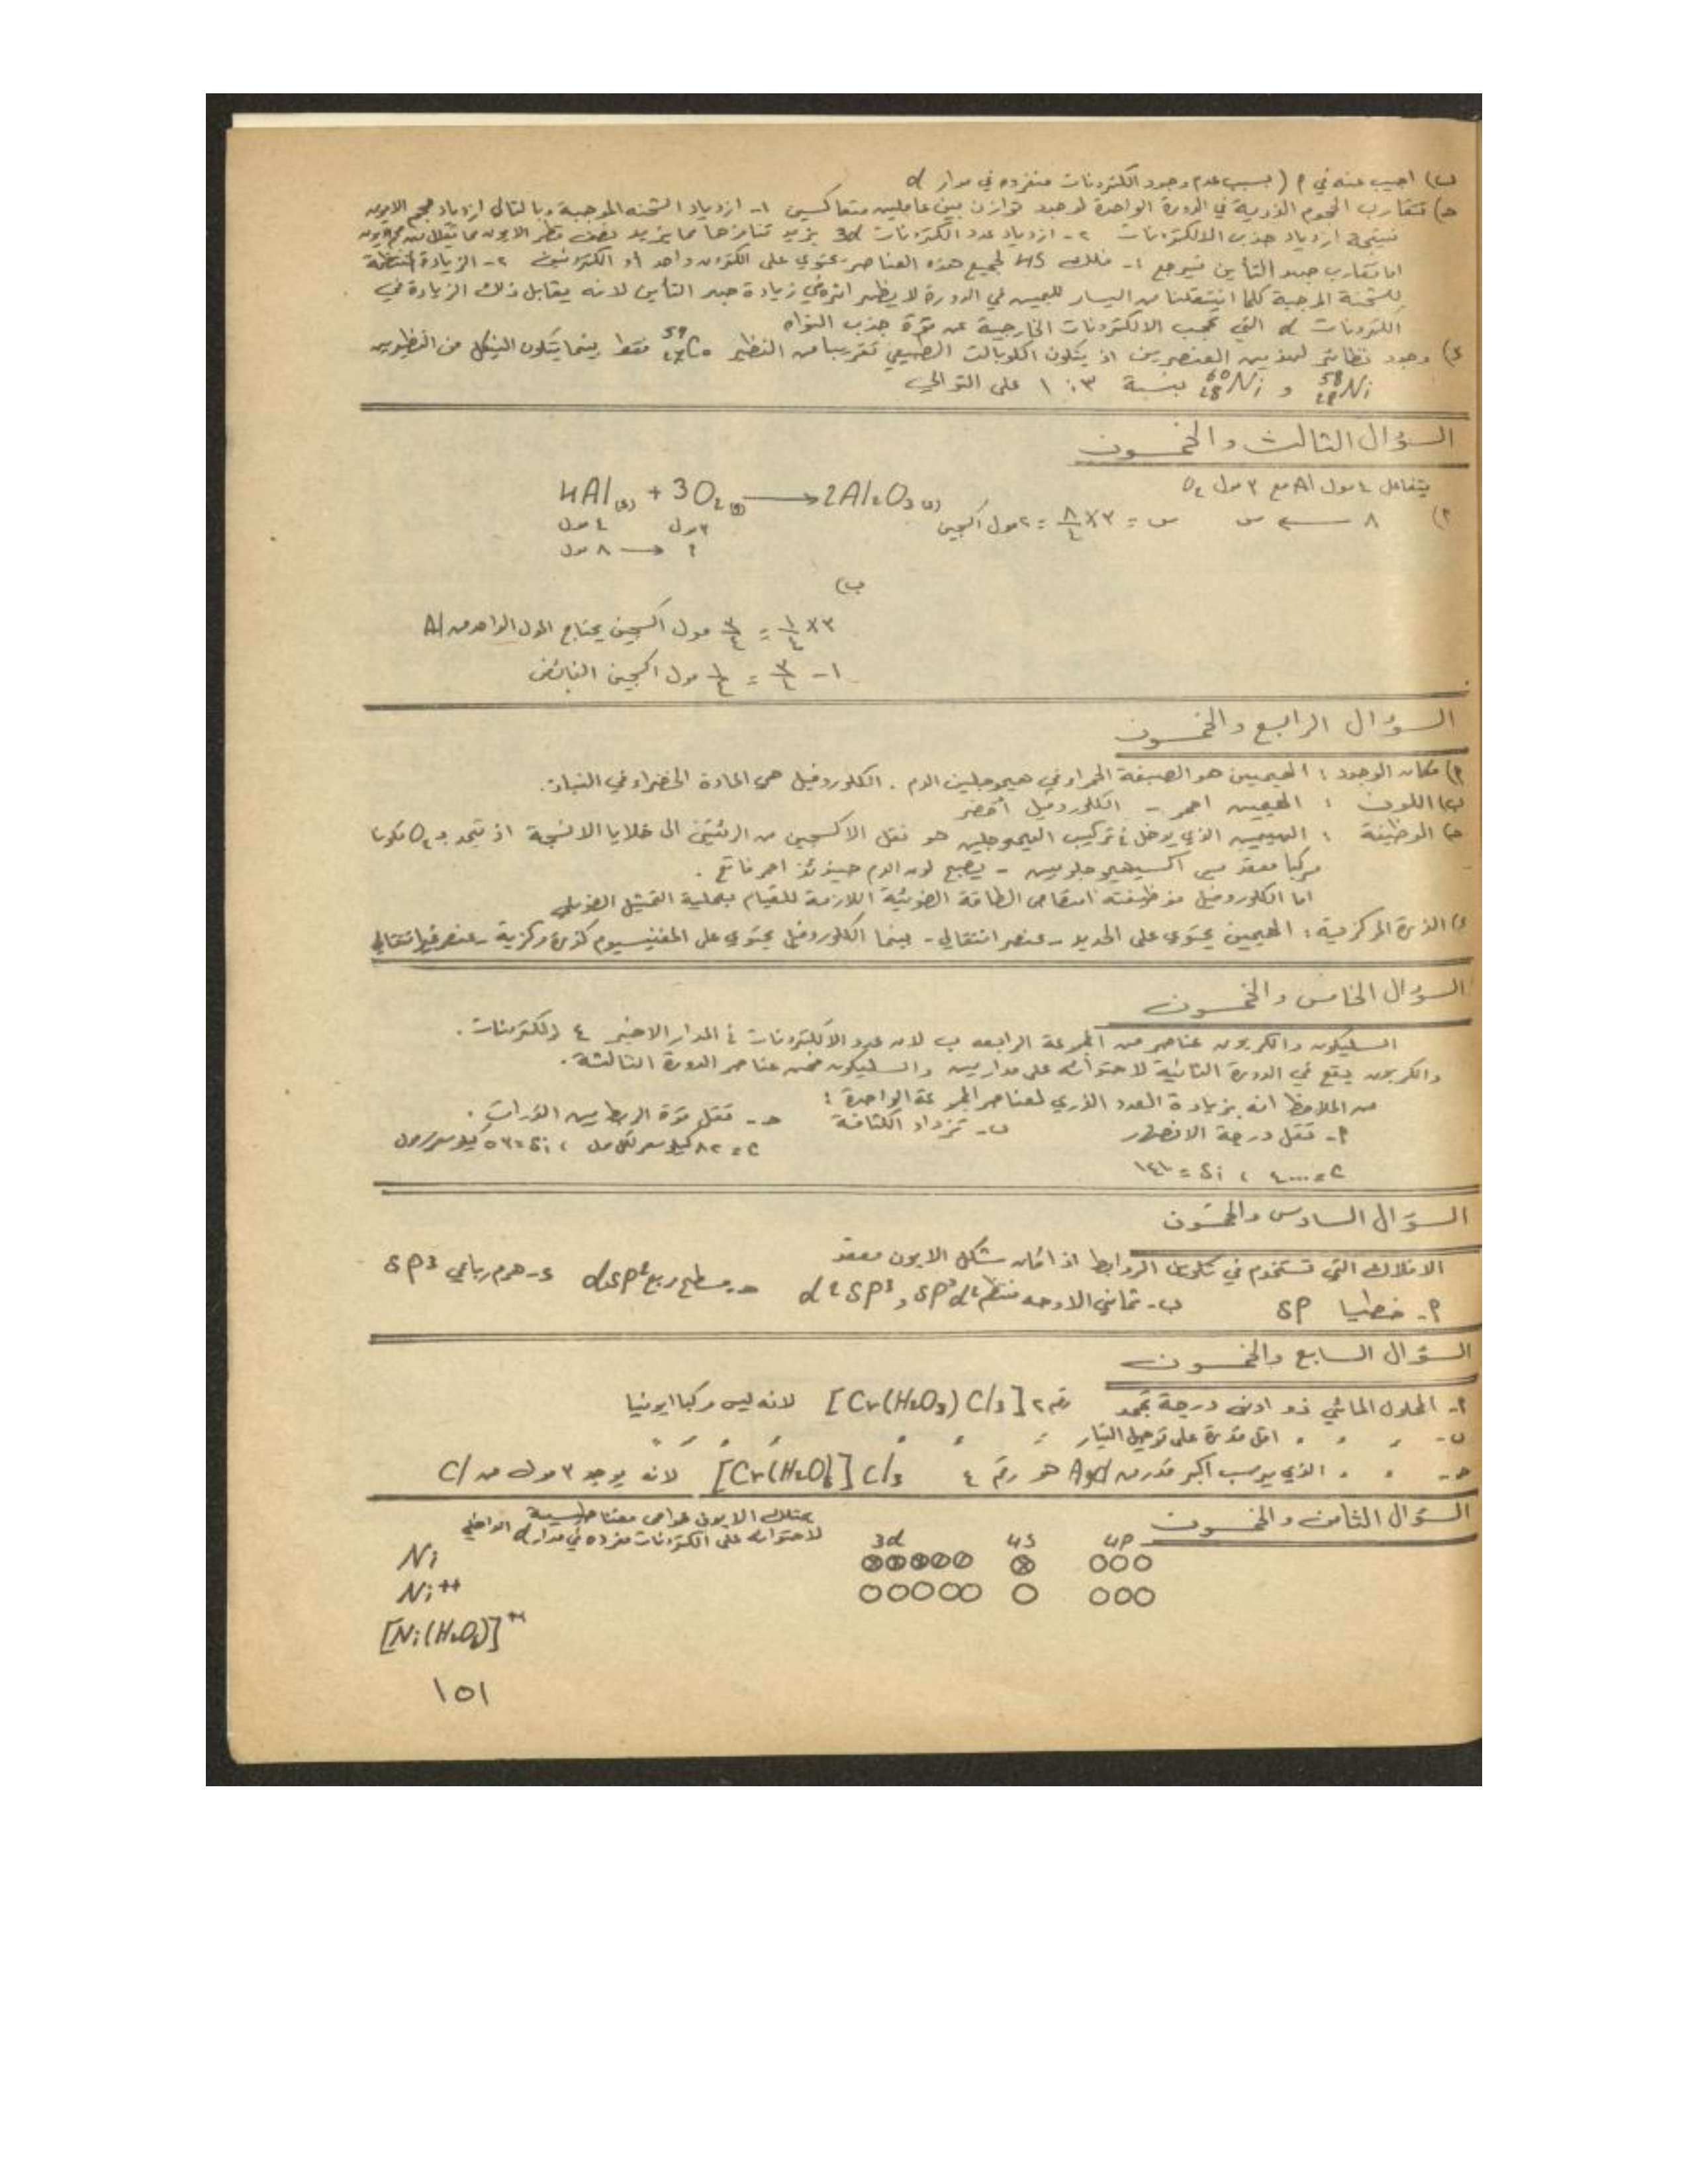 ب) اجيب عنه في م (بسبب عدم وجود الكترونات منفرده في مدار d
ح) تتقارب الحجوم الذرية في الدورة الواحدة لوجود توازن بين عاملين متعاكسين ١- ازدياد الشحنه الموجبة وبالتالي ازدياد حجم الايون
نتيجة ازدياد جذب الالكترونات ٢- ازدياد عدد الكترونات 3d يزيد تنافرها مما يزيد نصف قطر الايون مما
اما تقارب جهد التأين فيرجع ١- فلك 4S لجميع هذه العناصر يحتوي على الكترون واحد أو الكترونين ٢- الزيادة المنتظمة
للشحنة الموجبة كلما انتقلنا من اليسار لليمين في الدورة لا يظهر اثره في زيادة جهد التأين لانه يقابل ذلك الزيادة في
الكترونات d التي تحجب الالكترونات الخارجية عن قوة جذب النواه
د) وجود نظائر لهذين العنصرين اذ يتكون الكوبالت الطبيعي تقريبا من النظير ⁵⁹₂₇Co فقط بينما يتكون النيكل من النظيرين
⁵⁸₂₈Ni و ⁶⁰₂₈Ni بنسبة ٣ : ١ على التوالي
السؤال الثالث والخمسون
يتفاعل ٤ مول Al مع ٣ مول O₂
4Al(s) + 3O₂(g) ⟶ 2Al₂O₃(s)
م) ٨ ⟵ س س = ٣ × ٨/٤ = ٢ مول اكسجين
٤ مول ٣ مول
٨ مول ⟶ ؟
ب)
٣ × ١/٤ = ٣/٤ مول اكسجين يحتاج المول الواحد من Al
١ - ٣/٤ = ١/٤ مول اكسجين الفائض
السؤال الرابع والخمسون
م) مكان الوجود : الهيمين هو الصبغة الحمراء في هيموجلبين الدم . الكلوروفيل هي المادة الخضراء في النبات.
ب) اللون : الهيمين احمر - الكلوروفيل أخضر
ح) الوظيفة : الهيمين الذي يدخل في تركيب الهيموجلبين هو نقل الاكسجين من الرئتين الى خلايا الانسجة اذ يتحد بـ O₂ مكونا
مركبا معقد يسمى اكسيهيموجلوبين - يصبح لون الدم حينئذ احمر فاتح .
اما الكلوروفيل فوظيفته امتصاص الطاقة الضوئية اللازمة للقيام بعملية التمثيل الضوئي
د) الذرة المركزية : الهيمين يحتوي على الحديد - عنصر انتقالي - بينما الكلوروفيل يحتوي على المغنيسيوم كذرة مركزية - عنصر غير انتقالي
السؤال الخامس والخمسون
السليكون والكربون عناصر من المجموعة الرابعه ب لان عدد الالكترونات في المدار الاخير ٤ إلكترونات.
والكربون يقع في الدورة الثانية لاحتوائه على مدارين والسليكون ضمن عناصر الدورة الثالثة.
من الملاحظ انه بزيادة العدد الذري لعناصر المجموعة الواحدة :
م- تقل درجة الانصهار ب- تزداد الكثافة ح- تقل قوة الربط بين الذرات .
C = ٤٠٠٠ ، Si = ١٤١٠ C = ٨٢ كيلو سعر لكل مول ، Si = ٥٣ كيلو سعر/مول
السؤال السادس والخمسون
الافلاك التي تستخدم في تكوين الروابط اذا كان شكل الايون معقد
م- خطيا SP ب- ثماني الاوجه منتظم d²SP³ , SP³d² ح- مسطح مربع dSP² د- هرم رباعي SP³
السؤال السابع والخمسون
م- المحلول المائي ذو ادنى درجة تجمد رقم ٢ [Cr(H₂O₃) Cl₃] لانه ليس مركبا ايونيا
ب- " " " اقل قدرة على توصيل التيار " " " " " " "
ح- " " " الذي يرسب اكبر قدر من AgCl هو رقم ٤ [Cr(H₂O)₆] Cl₃ لانه يوجد ٣ مول من Cl
السؤال الثامن والخمسون
يمتلك الايون خواص مغناطيسية
لاحتوائه على الكترونات مفرده في مدار d الداخلي
3d 4S 4P
Ni
Ni⁺⁺
[Ni(H₂O)₆]⁺⁺
١٥١